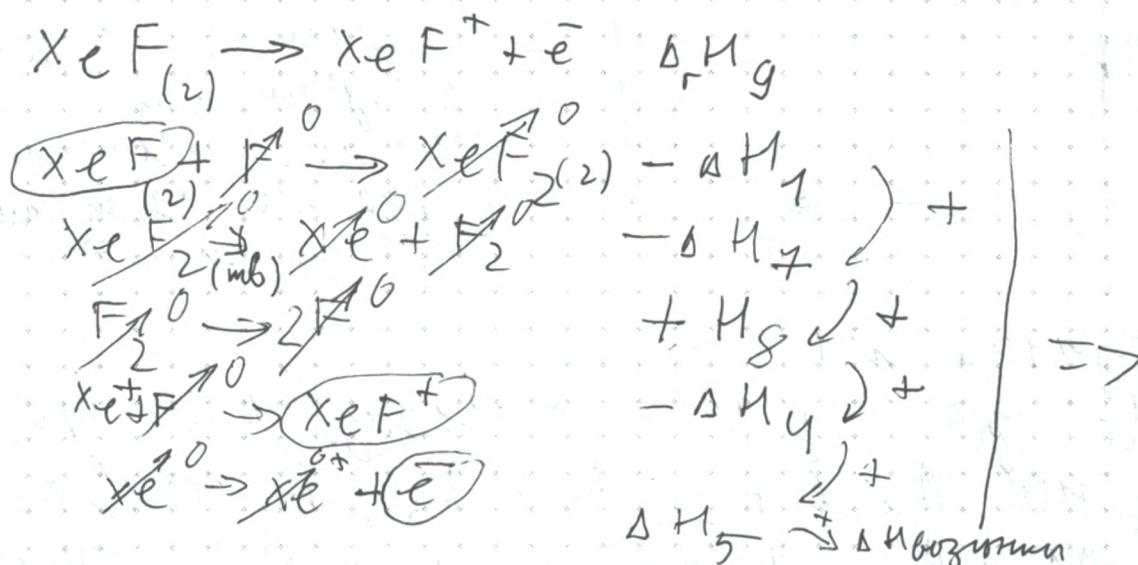 XeF(г) → XeF⁺ + ē ΔᵣH₉
XeF(г) + F⁰ → XeF₂(г)⁰ - ΔH₁
XeF₂(тв)⁰ → Xe⁰ + F₂⁰ - ΔH₇ +
F₂⁰ → 2F⁰ + H₈ +
Xe⁺+F⁰ → XeF⁺ - ΔH₄ + =>
Xe⁰ → Xe⁰⁺ + ē +
ΔH₅ + ΔHвозгонки